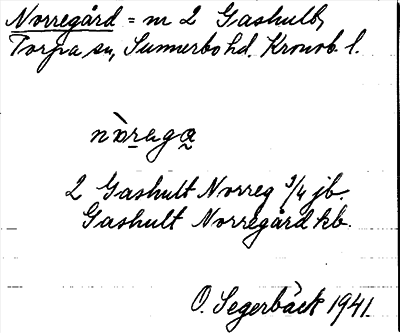 Norregård = m 2 Gashult,
Torpa sn, Sunnerbo hd. Kronob. l.
nòrega
2 Gashult Norreg 3/4 jb.
Gashult Norregård kb.
O. Segerbäck 1941.